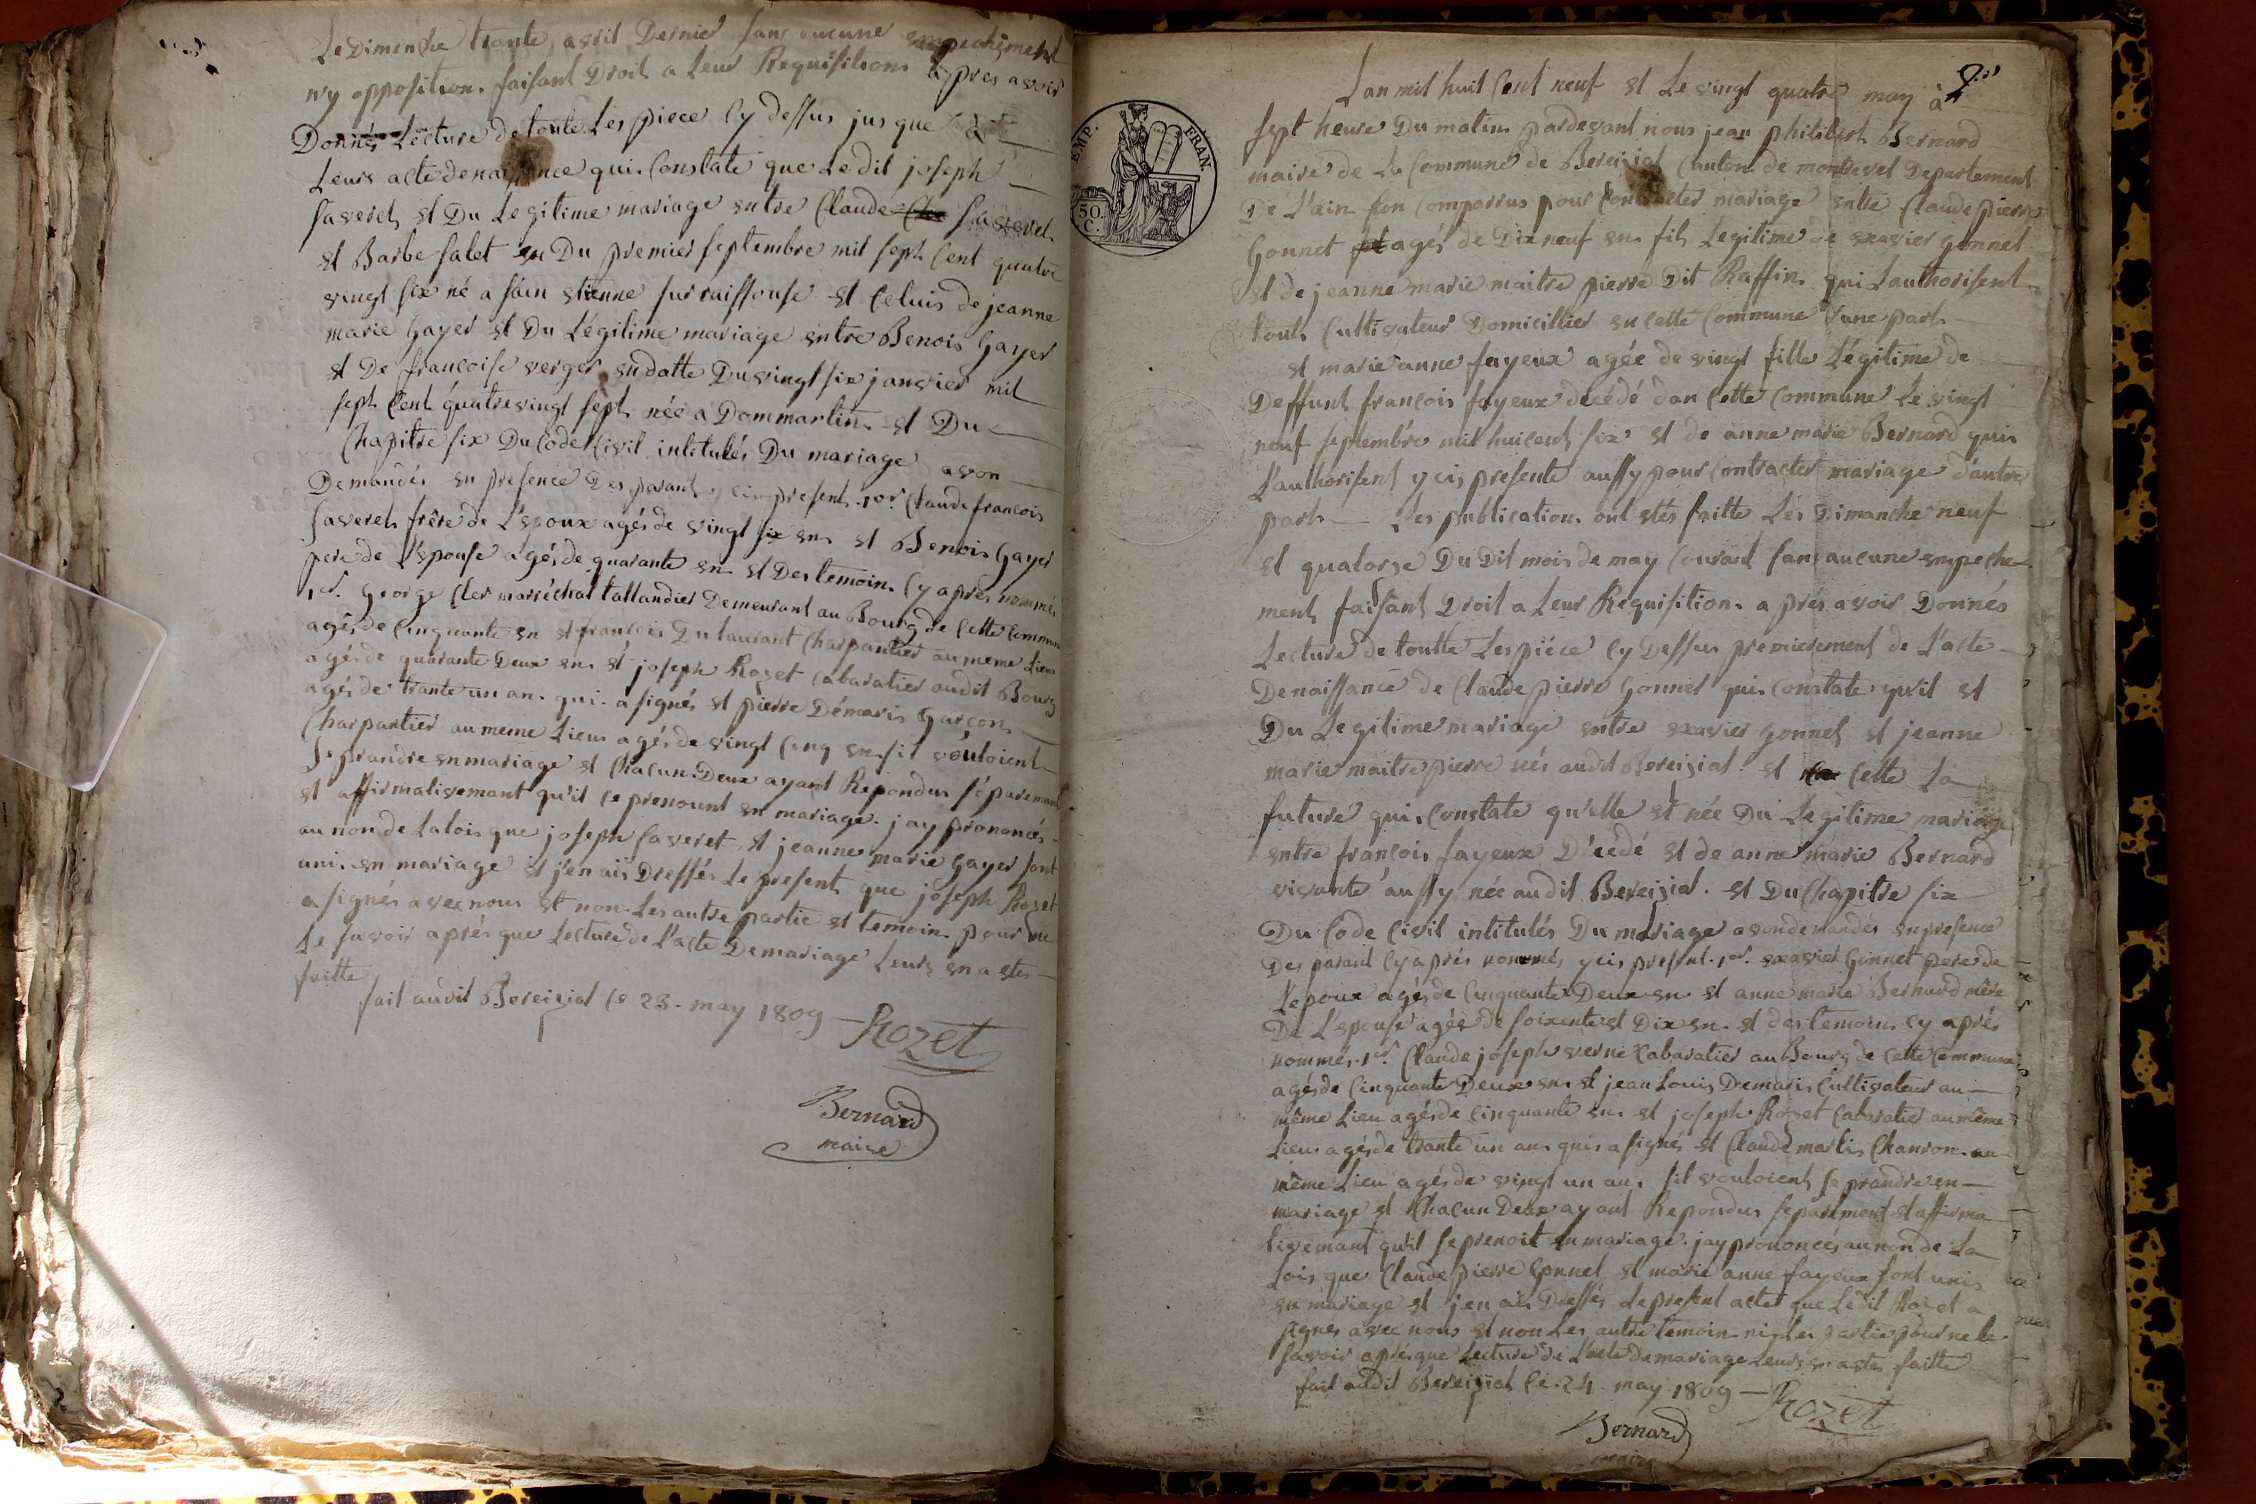 Le Dimenche trante avril Dernier sans aucune empechement
n'y opposition. faisant Droit a Leur Requisition a pres avoir
Donnés Lecture de toute Les piece Cy dessus jus que à
Leurs acte de naissance qui Constate que Ledit joseph
saveret et Du Legitime mariage entre Claude saveret
et Barbe falet Du premier septembre mil sept Cent quatre
vingt six né a sain etienne sur raissouse et Celuis de jeanne
marie Gayer et Du Légitime mariage entre Benois Gayer
et De francoise verger en datte Du vingt six janvier mil
sept Cent quatrevingt sept née a Dommartin et Du
Chapitre six Du Code Civil intitulés Du mariage avon
Demandés en presence Des parant y cis present 1er. Claude francois
saveret frère de L'epoux agés de vingt six en. et Benois Gayer
pere de L'epouse agés de quarante en. et Des temoin. Cy après nommés
1er. George Cler maréchal tallandier Demeurant au Bourg de Cette Commune
agés de Cinquante en et francois Dulaurant Charpantier au meme Lieu
agés de quarante Deux en. et joseph Rozet Cabaratier audit Bourg
agés de trante un an. qui a signés et pierre Démaris Garçon
Charpantier au meme Lieu agés de vingt Cinq en. sil vouloient
se prandre en mariage et Chacun Deux ayant Repondus séparemant
et affirmativemant qu'il ce prenount en mariage. j'ay prononcés
au non de La lois que joseph saveret et jeanne marie Gayer sont
unis en mariage et j'en ais Dressés Le present que joseph Rozet
a signés avec nous et non Les autre partie et temoin pour ne
Le savoir après que Lecture de L'acte De mariage Leurs en a etes
faitte
fait audit Bereiziat Ce 23. may 1809 Rozet
Bernard
maire
EMP. FRAN.
50. C.
Lan mil huit Cent neuf et Le vingt quatre may à
sept heure Du matin pardevant nous jean philibert Bernard
maire de La Commune de Bereiziat Canton de montrevel Departement
De L'ain son Comparrus pour Contracter mariage entre Claude pierre
Gonnet agés de Dix neuf en. fils Legitime de exavier Gonnet
et de jeanne marie maitre pierre Dit Raffin qui L'authorisent
touts Cultivateur Domicillier en cette Commune Dune part
et marie anne fayeux agée de vingt fille Légitime de
Deffunt francois fayeux décédé dan Cette Commune Le vingt
neuf septembre mil huicent six et de anne marie Bernard quis
L'authorisent y cis presente aussy pour Contracter mariage d'autre
part Les publication. ont etés faitte Les Dimanche neuf
et quatorze Du Dit mois de may Courant sans aucune empeche
ment faisant Droit a Leur Requisition. a prés avoir Donnés
Lecture de toutte Les piéce Cy Dessus premierement de L'acte
De naissance de Claude pierre Gonnet qui Constate qu'il et
Du Legitime mariage entre exavier Gonnet et jeanne
marie maitre pierre nés audit Bereiziat. et Celle La
future qui Constate qu'elle et née Du Legitime mariage
entre francois fayeux Décedé et de anne marie Bernard
vivante aussy née audit Bereiziat. et Du Chapitre six
Du Code Civil intitulés Du mariage avon demandés en presence
Des parant Cy aprés nommés y cis present. 1er. exavier Gonnet pere de
L'epoux agés de Cinquante Deux en. et anne marie Bernard mère
De L'epouse agée de soixente et Dix en. et des temoin. Cy aprés
nommés. 1er. Claude joseph verne Cabaratier au Bourg de Cette Commune
agés de Cinquante Deux en. et jean Louis Demaris Cultivateur au
même Lieu agés de Cinquante en. et joseph Rozet Cabaratier au même
Lieu agés de trante un an. quis a signés et Claude marlis Chanron. au
même Lieu agés de vingt un an. sil vouloient se prandre en
mariage et Chacun Deux ayant Repondus separément et affirma
tivemant qu'il se prenoit en mariage. jay prononcés au non de La
Lois que Claude pierre Gonnet et marie anne fayeux sont unis
en mariage et j'en ais Dressés Le present acte que Ledit Rozet a
signés avec nous et non Les autre temoin ni Les partie pour ne Le
savoir aprés que Lecture de L'acte de mariage Leurs en a etes faitte
fait audit Bereiziat Ce. 24. may. 1809 Rozet
Bernard
maire